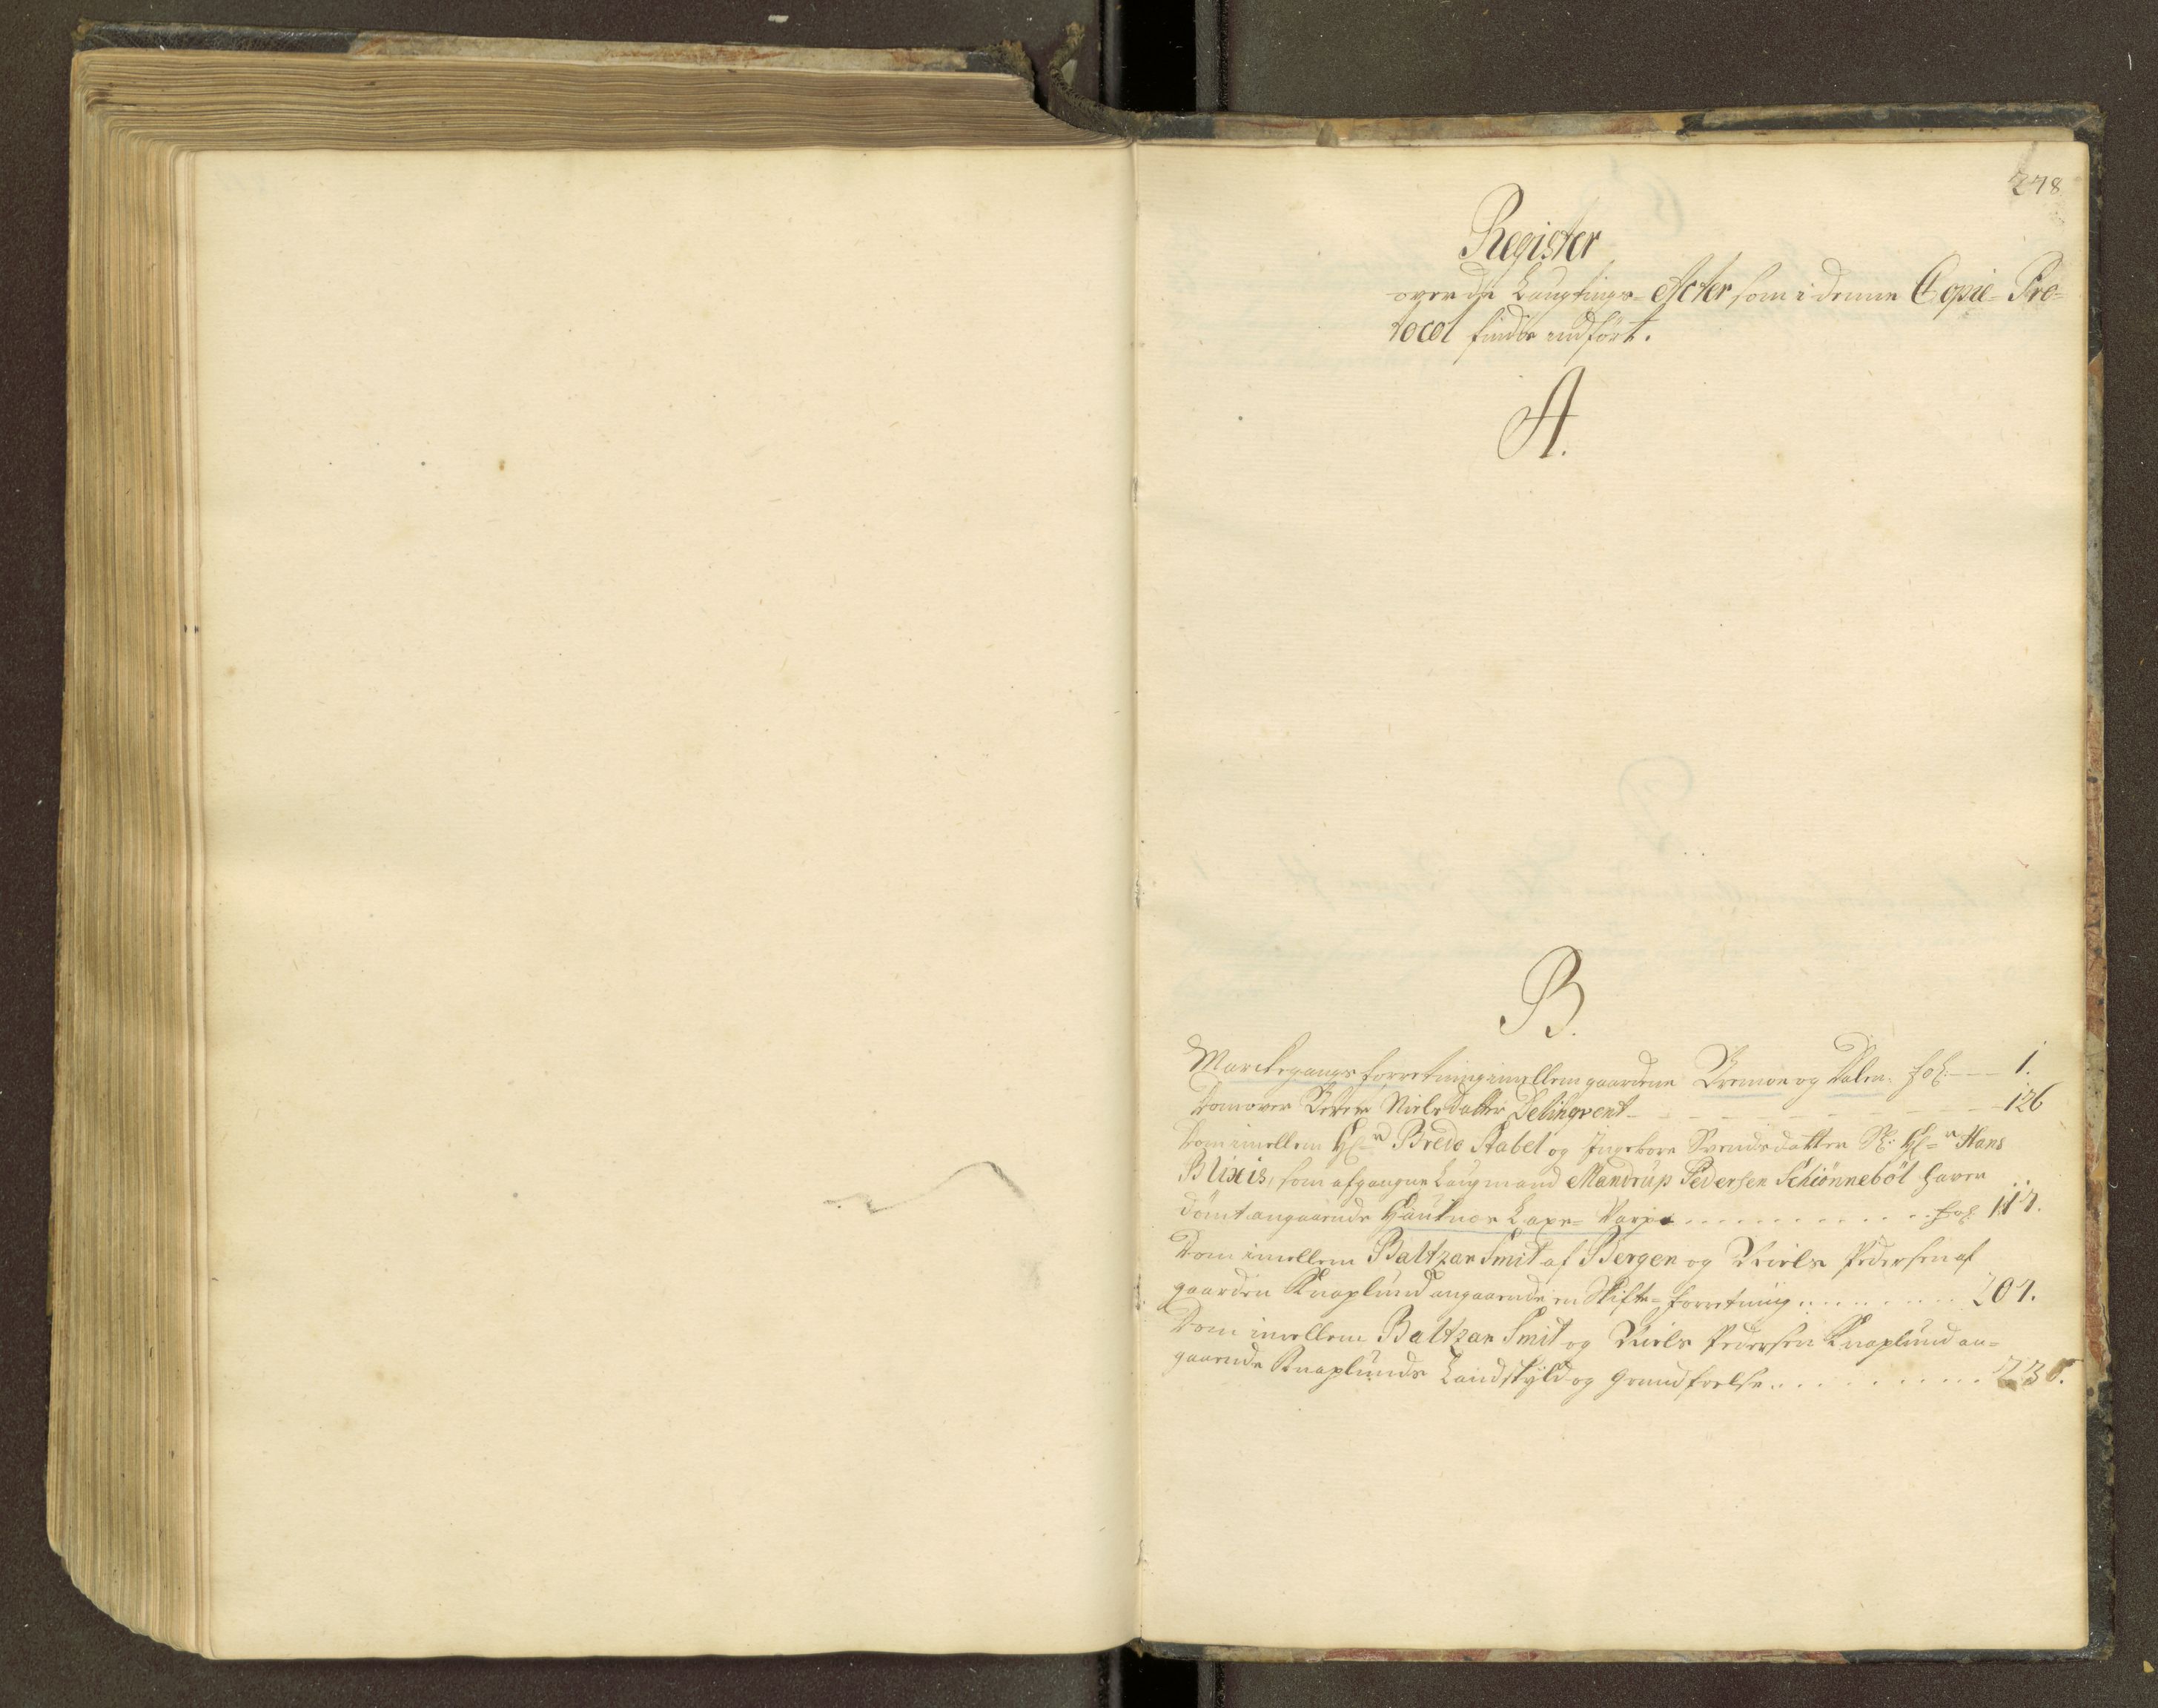 278
Register
over de Laugtings= Acter som i denne Copie= Pro=
tocol findes indført.
A.
B.
Marckegangs forretning imellem gaardene Bremoe og Dalen. fol: — 1.
Dom over Beret Niels Datter Delinqvent — 126
Dom imellem Hr Bredo Stabel og Ingebore Svends datter Sl: Hr Hans
Blixis, som afgangne Laugmand Mandrup Pedersen Schiønnebøl haver
dømt angaaende Laxe= Varpe . . . . . fol
Dom imellem Baltzar Smit af Bergen og Niels Pedersen af
gaarden Knaplund angaaende en Skifte= forretning . . . . . 207.
Dom imellem Baltzar Smit og Niels Pedersen Knaplund an=
gaaende Knaplunds Landskyld og